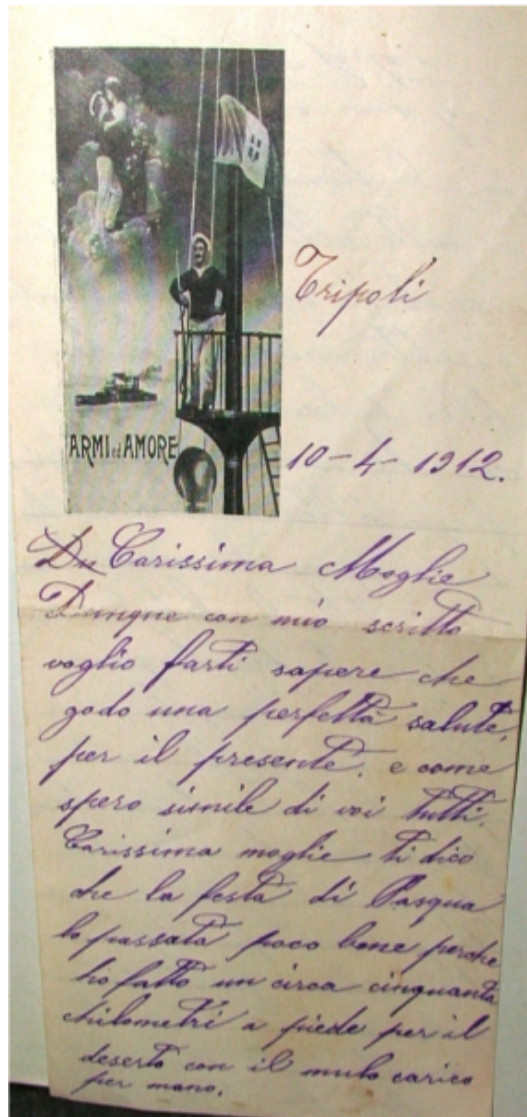 Tripoli
ARMI ed AMORE
10-4-1912.
Du Carissima Moglie
Dunque con mio scritto
voglio farti sapere che
godo una perfetta salute,
per il presente, e come
spero simile di voi tutti.
Carissima moglie ti dico
che la festa di Pasqua
lo passata poco bene perche
ho fatto un circa cinquanta
chilometri a piede per il
deserto con il mulo carico
per mano.